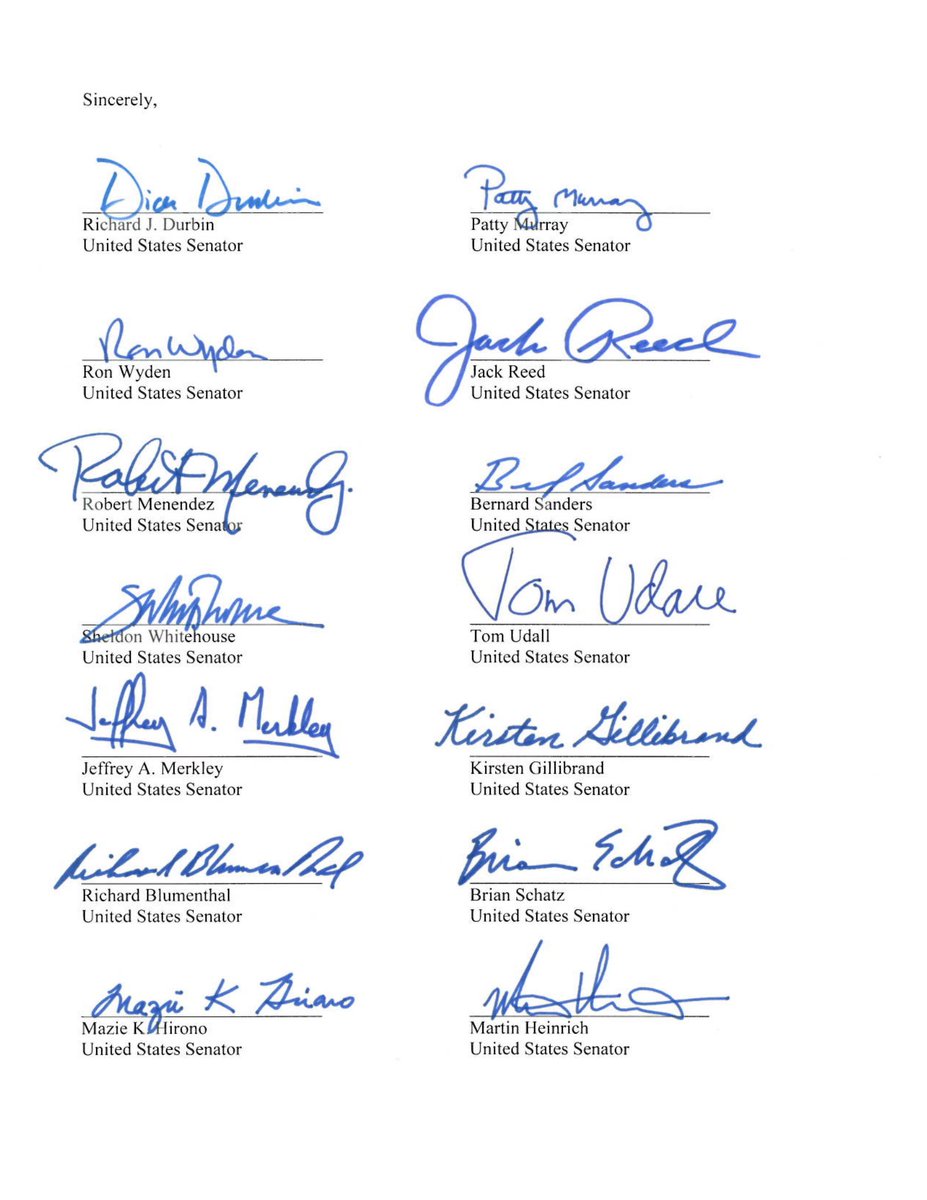 Sincerely,
Dick Durbin
Patty Murray
Richard J. Durbin
Patty Murray
United States Senator
United States Senator
Ron Wyden
Jack Reed
Ron Wyden
Jack Reed
United States Senator
United States Senator
Robert Menendez
Sanders
Robert Menendez
Bernard Sanders
United States Senator
United States Senator
SWhitehouse
Tom Udall
Sheldon Whitehouse
Tom Udall
United States Senator
United States Senator
Jeffrey A. Merkley
Kirsten Gillibrand
Jeffrey A. Merkley
Kirsten Gillibrand
United States Senator
United States Senator
Richard Blumenthal
Brian Schatz
Richard Blumenthal
Brian Schatz
United States Senator
United States Senator
Mazie K Hirono
Mazie K. Hirono
Martin Heinrich
United States Senator
United States Senator